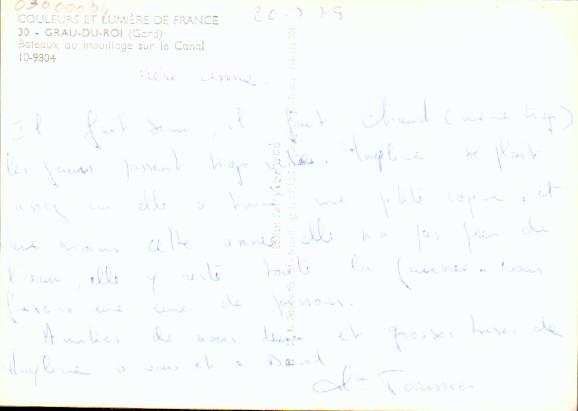 03000034
20-7 79
COULEURS ET LUMIÈRE DE FRANCE
30 - GRAU-DU-ROI (Gard)
Bateaux au mouillage sur le Canal
10-9804
Il fait beau, il fait chaud (même trop)
les jours passent trop vite. se plait
assez car elle a trouvé une petite copine. et
au moins cette année elle n'a pas peur de
l'eau, elle y reste toute la journée. nous
faisons une cure de poissons.
Amitiés de nous deux et grosses bises de
à vous et à